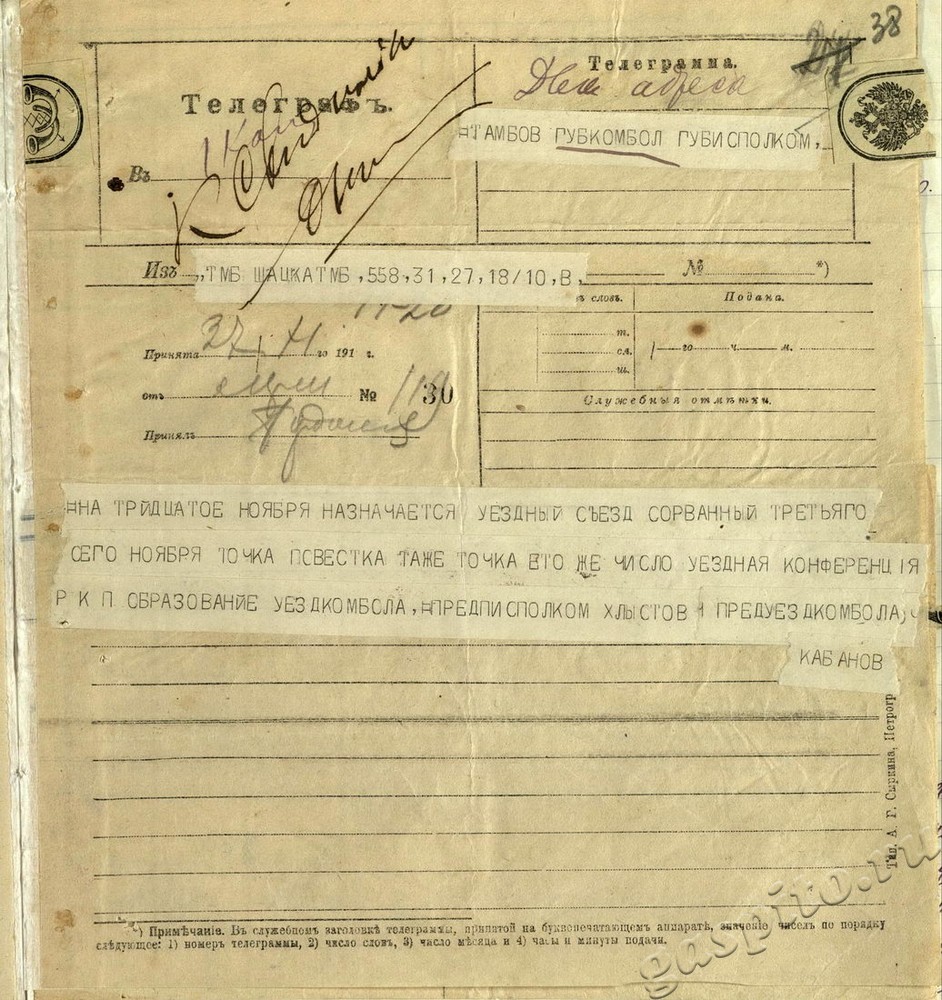 38
Телеграфъ.
Телеграмма.
Два адреса
=ТАМБОВ ГУБКОМБОЛ ГУБИСПОЛКОМ,
Въ
Изъ „ТМБ ШАЦКАТМБ,558,31,27,18/10,В, № *)
ъ словъ. Подана.
Принята 27 XI го 191 г.
т.
сл. го ч. м.
ш.
отъ № 30
Служебныя отмѣтки.
Принялъ
=НА ТРИДЦАТОЕ НОЯБРЯ НАЗНАЧАЕТСЯ УЕЗДНЫЙ СЪЕЗД СОРВАННЫЙ ТРЕТЬЯГО
СЕГО НОЯБРЯ ТОЧКА ПОВЕСТКА ТАЖЕ ТОЧКА ВТО ЖЕ ЧИСЛО УЕЗДНАЯ КОНФЕРЕНЦIЯ
Р К П ОБРАЗОВАНИЕ УЕЗДКОМБОЛА,=ПРЕДПИСПОЛКОМ ХЛЫСТОВ ПРЕДУЕЗДКОМБОЛА
КАБАНОВ
Тип. А. Г. Сыркина, Петрогр
*) Примѣчаніе. Въ служебномъ заголовкѣ телеграммы, принятой на буквопечатающемъ аппаратѣ, значеніе чиселъ по порядку
слѣдующее: 1) номеръ телеграммы, 2) число словъ, 3) число мѣсяца и 4) часы и минуты подачи.
gaspito.ru